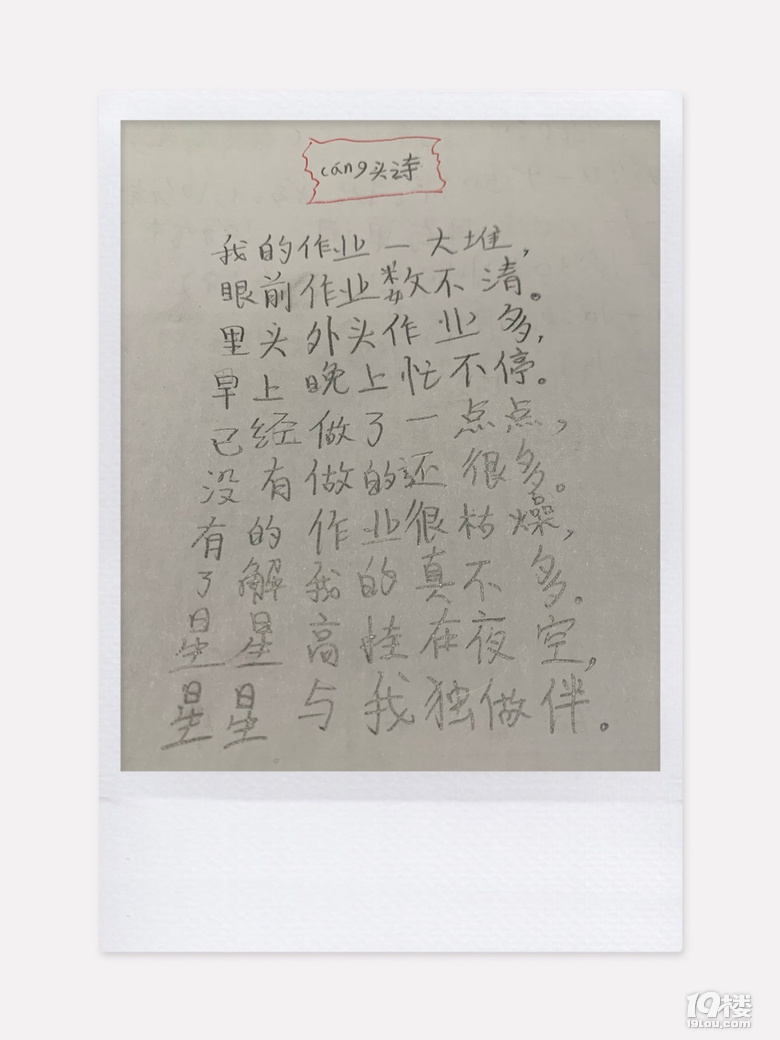 cáng头诗
我的作业一大堆，
眼前作业数不清。
里头外头作业多，
早上晚上忙不停。
已经做了一点点，
没有做的还很多。
有的作业很枯燥，
了解我的真不多。
星星高挂在夜空，
星星与我独做伴。
19楼
19lou.com